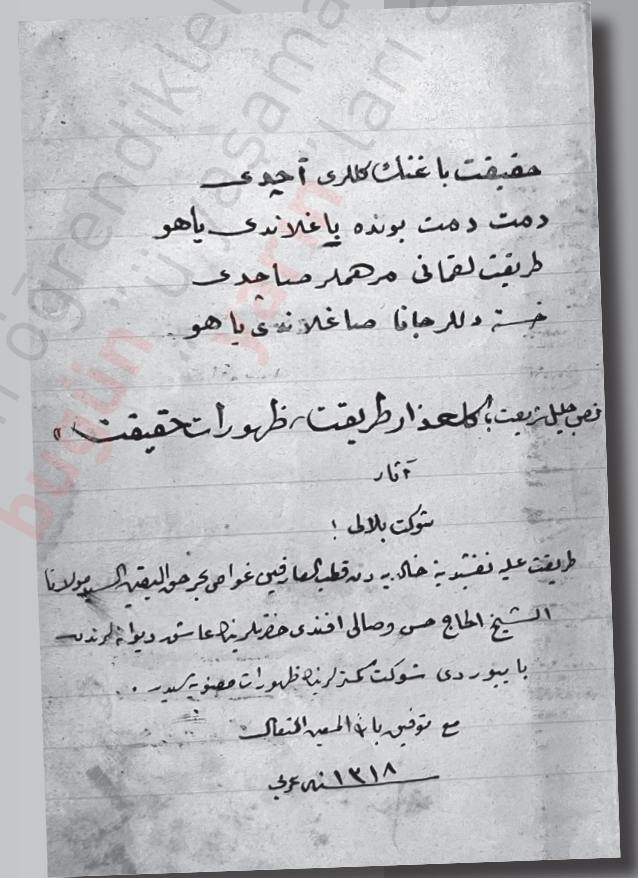 حقيقت باغنك كللرى آچدى
دمت دمت بونده باغلاندى ياهو
طريقت لقمانى مرهملر صاچدى
خسته دللر جانا صاغلاندى ياهو
كلعذار طريقت، ظهورات حقيقت»
آثار
شوكت بلالى !
طريقت عليه نقشبنديه خالديه دن قطب العارفين غواص بحر حق اليقين السيد مولانا
الشيخ الحاج حسن وصالى افندى حضرتلرينك عاشق ديوانه لرندن
بايبوردى شوكت ظهورات معنويه سيدر .
مع توفيق بالله المعين المتعال
١٣١٨ سنه عربى
öğrendikler
yaşama
ları
bugün
yarın